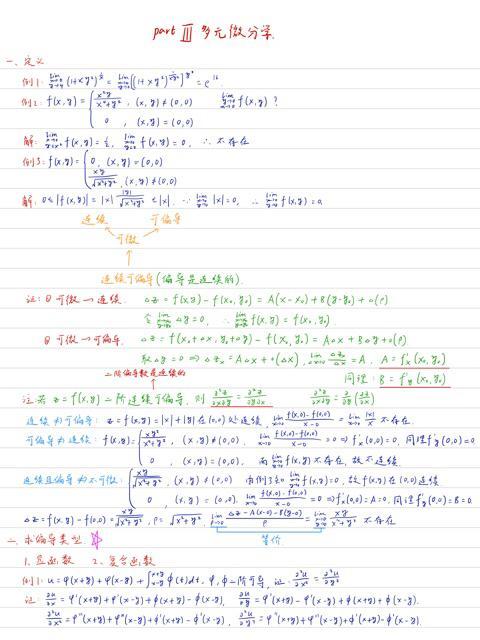 part III 多元微分学.
一、定义
例1: lim x→0 y→4 (1+xy²)^(1/x) = lim x→0 y→4 [(1+xy²)^(1/xy²)]^(y²) = e^16.
例2: f(x,y) = { x²y/(x⁴+y²), (x,y)≠(0,0) lim x→0 y→0 f(x,y) ?
0 , (x,y)=(0,0)
解: f(x,y)=½, f(x,y)=0, ∴不存在
例3: f(x,y)= { 0, (x,y)=(0,0)
xy/√(x²+y²), (x,y)≠(0,0)
解: 0≤|f(x,y)|=|x| |y|/√(x²+y²) ≤|x|. ∵ lim |x|=0, ∴ lim f(x,y)=0.
连续 可偏导
可微
连续可偏导(偏导是连续的).
注: ① 可微→连续. Δz = f(x,y)-f(x₀,y₀) = A(x-x₀)+B(y-y₀)+o(ρ)
Δz=0, ∴ lim f(x,y)=f(x₀,y₀).
② 可微→可偏导. Δz = f(x₀+Δx,y₀+Δy)-f(x₀,y₀)=AΔx+BΔy+o(ρ)
取Δy=0 ⇒ Δzₓ=AΔx+o(Δx), lim Δx→0 Δzₓ/Δx = A. A=f'ₓ(x₀,y₀)
二阶偏导数是连续的 同理: B=f'y(x₀,y₀)
注: 若 z=f(x,y) 二阶连续可偏导, 则 ∂²z/∂x∂y = ∂²z/∂y∂x ∂²z/∂x∂y = ∂/∂y(∂z/∂x)
连续为可偏导: z=f(x,y)=|x|+|y|在(0,0)处连续, lim x→0 (f(x,0)-f(0,0))/(x-0) = lim x→0 |x|/x 不存在.
可偏导为连续: f(x,y)= { xy/(x²+y²), (x,y)≠(0,0) lim x→0 (f(x,0)-f(0,0))/(x-0) =0 ⇒ f'ₓ(0,0)=0, 同理f'y(0,0)=0.
0 , (x,y)=(0,0) 而 lim f(x,y) 不存在, 故不连续.
连续且偏导为不可微: { xy/√(x²+y²), (x,y)≠(0,0) 由例3知 lim f(x,y)=0, 故f(x,y)在(0,0)连续
0 , (x,y)=(0,0). lim x→0 (f(x,0)-f(0,0))/(x-0) =0 ⇒ f'ₓ(0,0)=A=0, 同理f'y(0,0)=B=0.
Δz=f(x,y)-f(0,0)= xy/√(x²+y²), ρ=√(x²+y²), lim ρ→0 (Δz-A(x-0)-B(y-0))/ρ = lim xy/(x²+y²) 不存在
二、求偏导类型. 等价
1、显函数 2、复合函数
例1: u=φ(x+y)+φ(x-y)+∫ x-y x+y ϕ(t)dt, φ,ϕ二阶可导, 证: ∂²u/∂x² = ∂²u/∂y²
证: ∂u/∂x = φ'(x+y)+φ'(x-y)+ϕ(x+y)-ϕ(x-y). ∂u/∂y = φ'(x+y)-φ'(x-y)+ϕ(x+y)+ϕ(x-y).
∂²u/∂x² = φ''(x+y)+φ''(x-y)+ϕ'(x+y)-ϕ'(x-y), ∂²u/∂y² = φ''(x+y)+φ''(x-y)+ϕ'(x+y)-ϕ'(x-y).